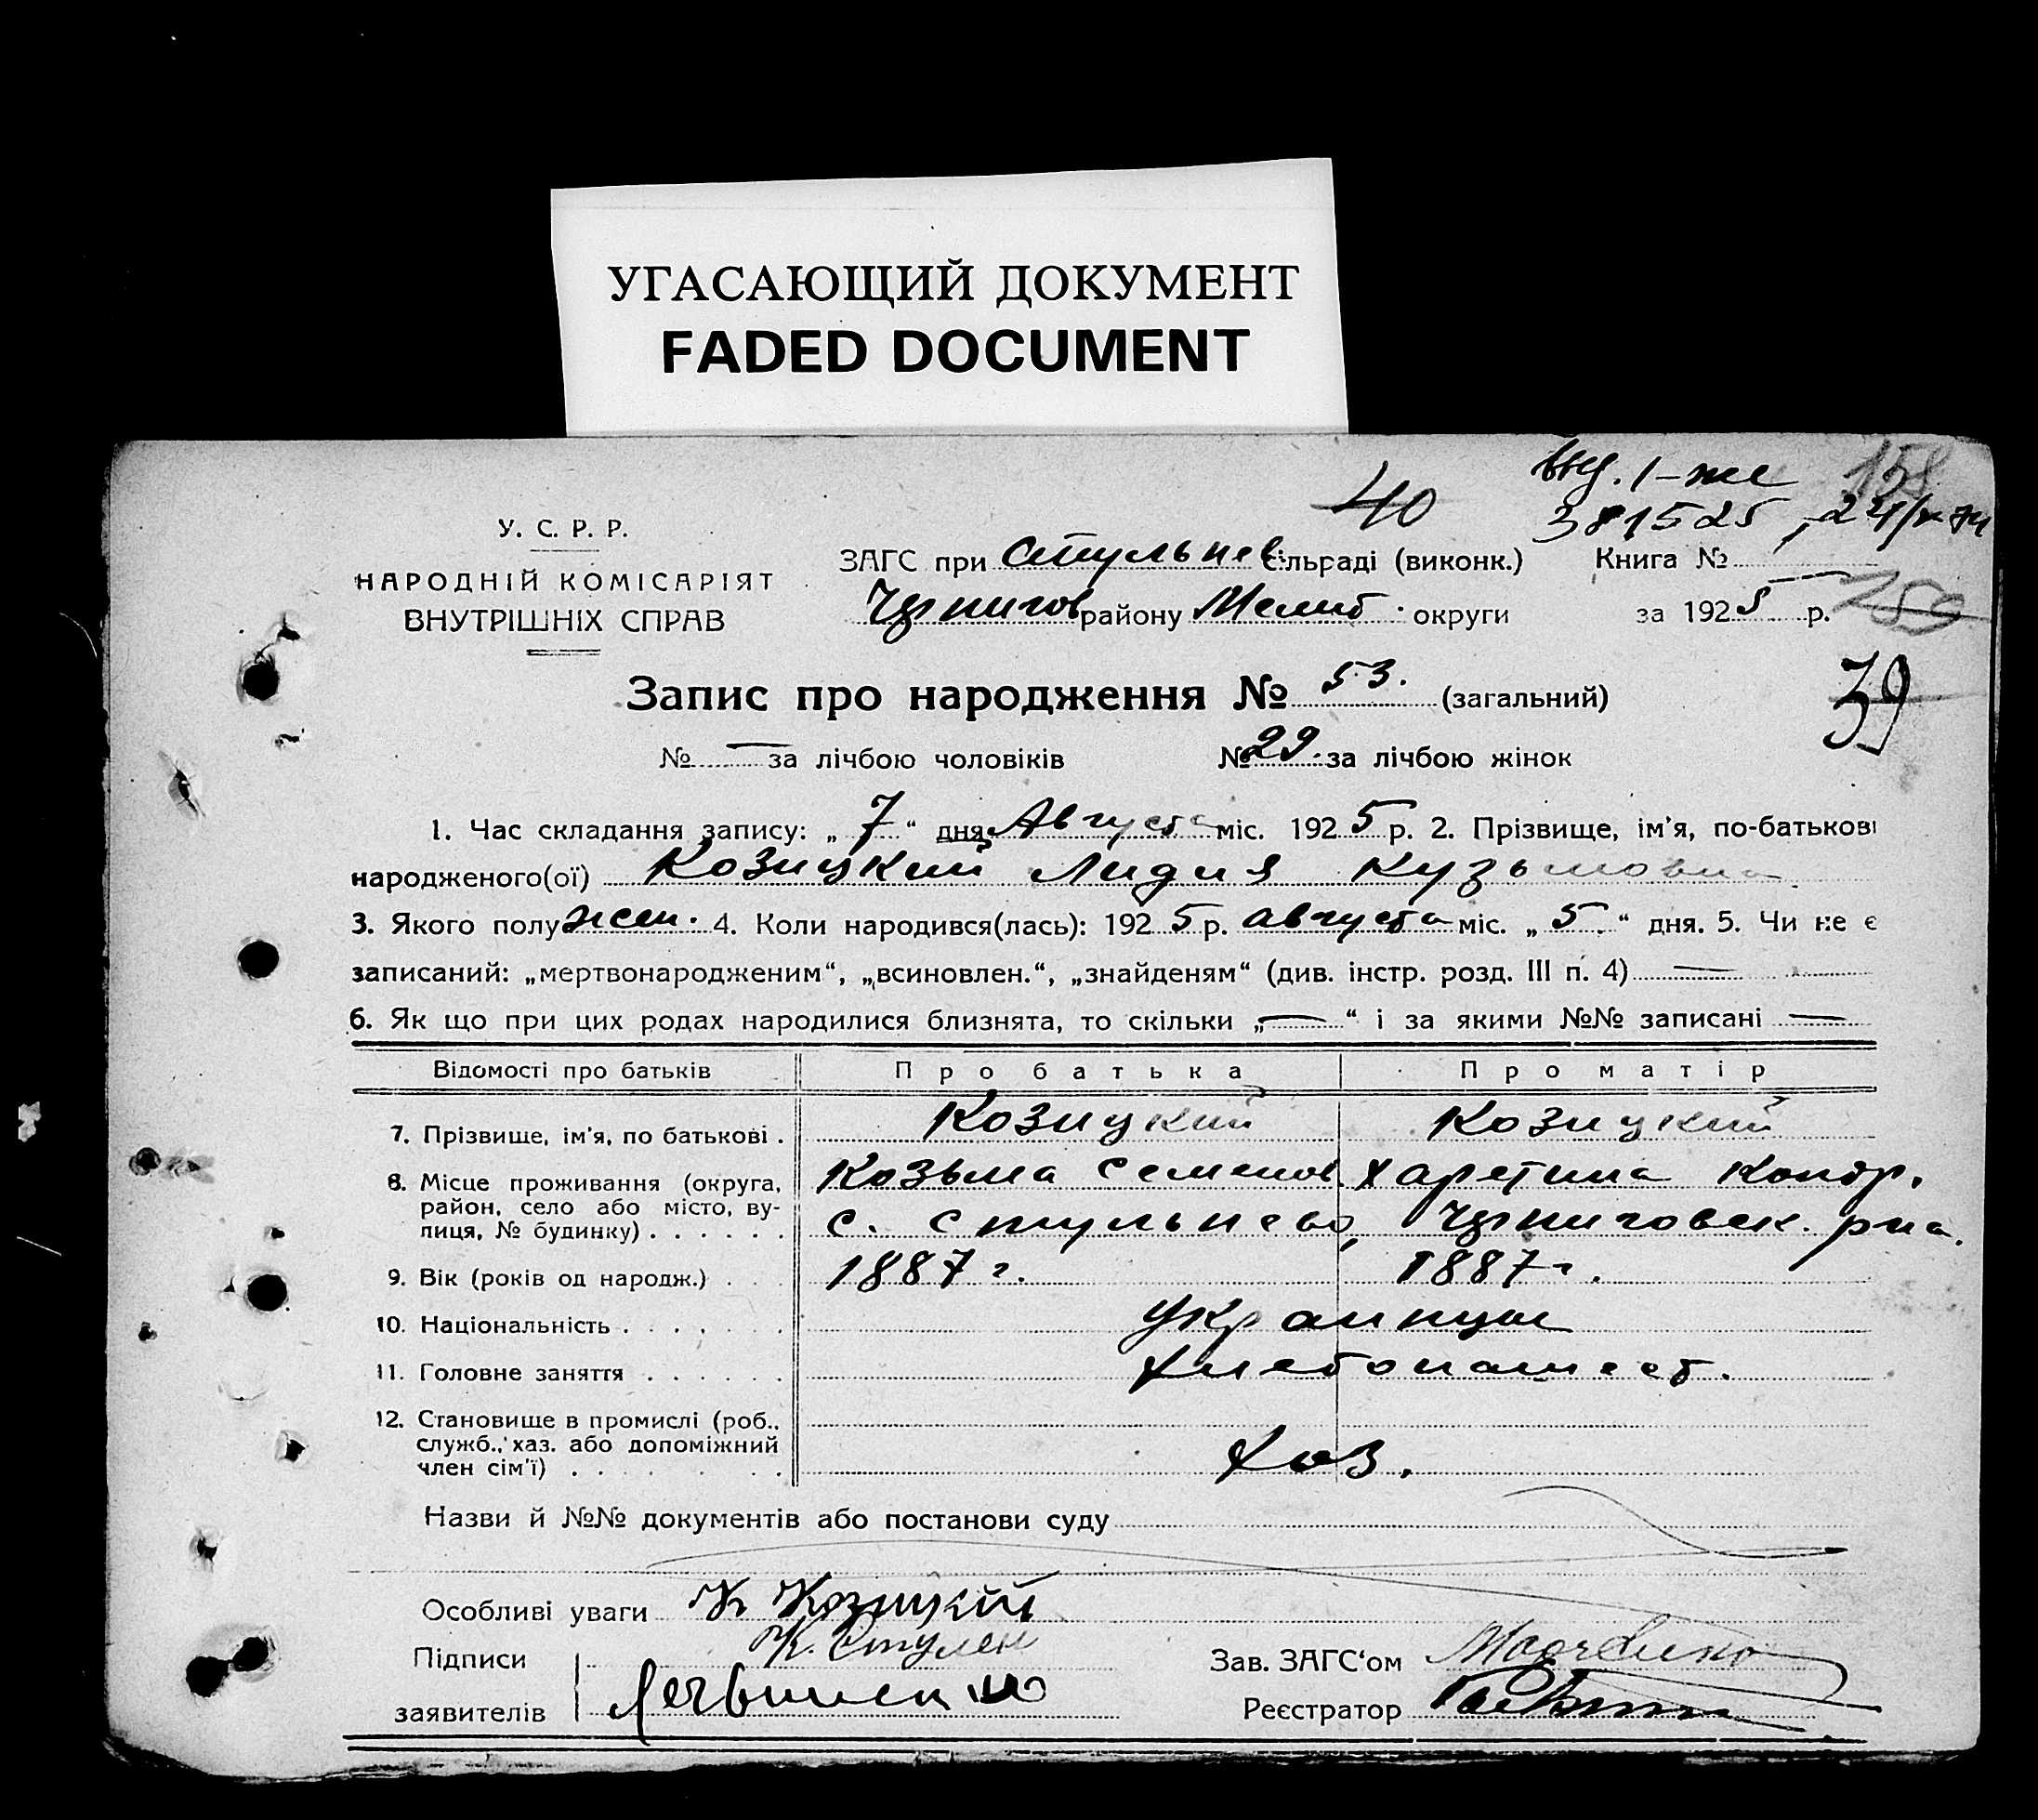 УГАСАЮЩИЙ ДОКУМЕНТ
FADED DOCUMENT
40
158
381525
У. С. Р. Р.
НАРОДНІЙ КОМІСАРІЯТ
ВНУТРІШНІХ СПРАВ
ЗАГС при Стульнев. сільраді (виконк.) Книга №
Чернигов району Мелит. округи за 1925 р.
189
39
Запис про народження № 53. (загальний)
№ — за лічбою чоловіків № 29. за лічбою жінок
1. Час складання запису: „7“ дня Августа міс. 1925 р. 2. Прізвище, ім'я, по-батькові
народженого(ої) Козицкий Лидия Кузьмовна
3. Якого полу жен. 4. Коли народився(лась): 1925 р. августа міс. „5.“ дня. 5. Чи не є
записаний: „мертвонародженим“, „всиновлен.“, „знайденям“ (див. інстр. розд. III п. 4) —
6. Як що при цих родах народилися близнята, то скільки „—“ і за якими №№ записані —
Відомості про батьків Про батька Про матір
7. Прізвище, ім'я, по батькові . Козицкий Козицкий
Козьма Семенов. Харетина Кондр.
8. Місце проживання (округа,
район, село або місто, ву-
лиця, № будинку) . . . . . . с. Стульнево, Черниговск. р-на.
9. Вік (років од народж.) . . . 1887 г. 1887 г.
10. Національність . . . . . . . Украинцы
11. Головне заняття . . . . . . Хлебопашест.
12. Становище в промислі (роб.,
служб., хаз. або допоміжний
член сім'ї) . . . . . . Хоз.
Назви й №№ документів або постанови суду
Особливі уваги К Козицкій
Підписи
заявителів
Зав. ЗАГС'ом
Реєстратор